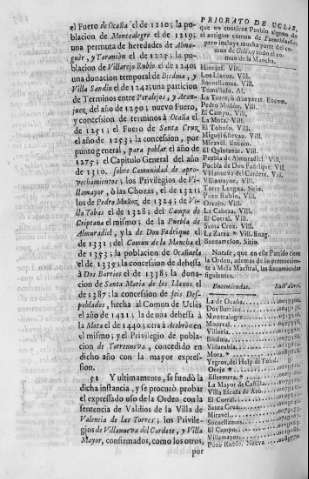 el Fuero de Ocaña el de 1210; la po-
blacion de Montealegre el de 1219;
una permuta de heredades de Almo-
guer, y Tarancon el de 122 ; la po-
blacion de Villarejo Rubio el de 1240;
una donacion temporal de Bedma, y
Villa Sandin el de 1242; una particion
de Terminos entre Paralejos, y Aran-
juez, del año de 1250; nuevo fuero,
y concesion de terminos à Ocaña el
de 1251; el Fuero de Santa Cruz,
el de 1253; la concesion, por
punto general, para poblar el año de
1275; el Capitulo General del año
de 1310, sobre Comunidad de apro-
vechamientos; los Privilegios de Vi-
llamayor, à las Chozas, el de 1321;
los de Pedro Muñoz, de 1324; de Vi-
lla Tobas el de 1328; del Campo de
Criptana el mismo; de la Puebla de
Almuradiel, y la de Don Fadrique el
de 1331; del Comun de la Mancha el
de 1353; la poblacion de Ocañuela
el de 1359; la concesion de dehesa
à Dos Barrios el de 1338; la dona-
cion de Santa Maria de los Llanos el
de 1387; la concesion de seis Des-
poblados, hecha al Comun de Uclés
el año de 1421; la de una dehesa à
la Mota el de 1440; cerca de
el mismo; y el Privilegio de pobla-
cion de Torrenueva, concedido en
dicho año con la mayor expres-
sion.
52 Y ultimamente, se fundó la
dicha instancia, y se procuró probar
el expressado uso de la Orden con la
sentencia de Valdios de la Villa de
Valencia de las Torres; los Privile-
gios de Villanueva del Cardete, y Villa
Mayor, confirmados, como los otros,
por
PRIORATO DE UCLES,
que no contiene Pueblo alguno de
el antiguo comun de
pero incluye mucha parte del co-
mun de Uclés, y todo el co-
mun de la Mancha.
Hinojoso. Vill.
Los Llanos. Vill.
Socuellamos. Vill.
Tomelloso. Al.
La Torre, à
Pedro Muñoz. Vill.
El Campo. Vill.
La Mota. Vill.
El Toboso. Vill.
Miguel Esteban. Vill.
Miravel. Encom.
El Quintanar. Vill.
Puebla de Almuradiel. Vill.
Puebla de Don Fadrique. Vill.
Villanueva del Cardete. Vill.
Villamayor. Vill.
Torre Luenga. Sitio.
Pozo Rubio. Vill.
Orcajo. Vill.
La Cabeza. Vill.
El Corral. Vill.
Santa Cruz. Vill.
La Zarza. Vill.
Bocamelon. Sitio.
Notase, que en este Partido tiene
la Orden, ademàs de lo perteneciente
à la Mesa Maestral, las Encomiendas
siguientes.
Encomiendas. Su Valor.
La de Ocaña
Dos Barrios
Montealegre
Monreal
Villoria
Bedma
Villarubia
Mora
Yegros, del Hosp. de Toled.
Oreja
Estremera
La Mayor de Castilla
Villa Escusa de Aro
El Corral
Santa Cruz
Miravel
Socuellamos
El Campo
Villamayor
Pozo Rubio